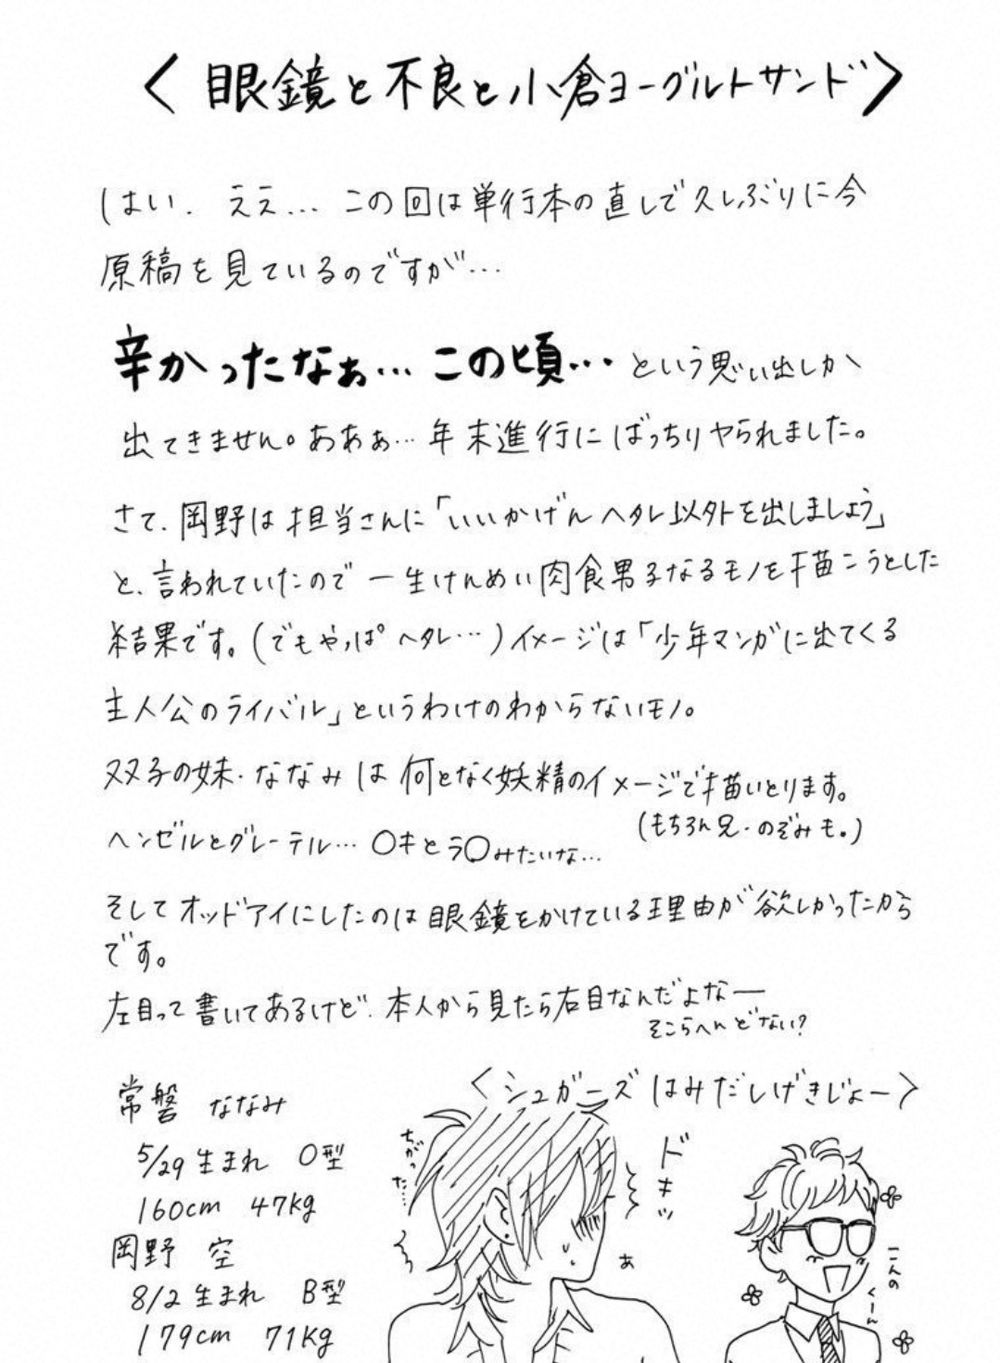 〈眼鏡と不良と小倉ヨーグルトサンド〉
はい.ええ…この回は単行本の直しで久しぶりに今
原稿を見ているのですが…
辛かったなぁ…この頃…という思い出しか
出てきません。あああ…年末進行にばっちりヤられました。
さて、岡野は担当さんに「いいかげんヘタレ以外を出しましょう」
と、言われていたので一生けんめい肉食男子なるモノを描こうとした
結果です。(でもやっぱヘタレ…)イメージは「少年マンガに出てくる
主人公のライバル」というわけのわからないモノ。
双子の妹・ななみは何となく妖精のイメージで描いとります。
(もちろん兄・のぞみも。)
ヘンゼルとグレーテル…〇キとラ〇みたいな…
そしてオッドアイにしたのは眼鏡をかけている理由が欲しかったから
です。
左目って書いてあるけど、本人から見たら右目なんだよなー
そこらへんどない?
常磐 ななみ
5/29生まれ O型
160cm 47kg
岡野 空
8/2生まれ B型
179cm 71kg
〈シュガーズはみだしげきじょー〉
ちがった…
ドキッ
あ
こんの
くーん